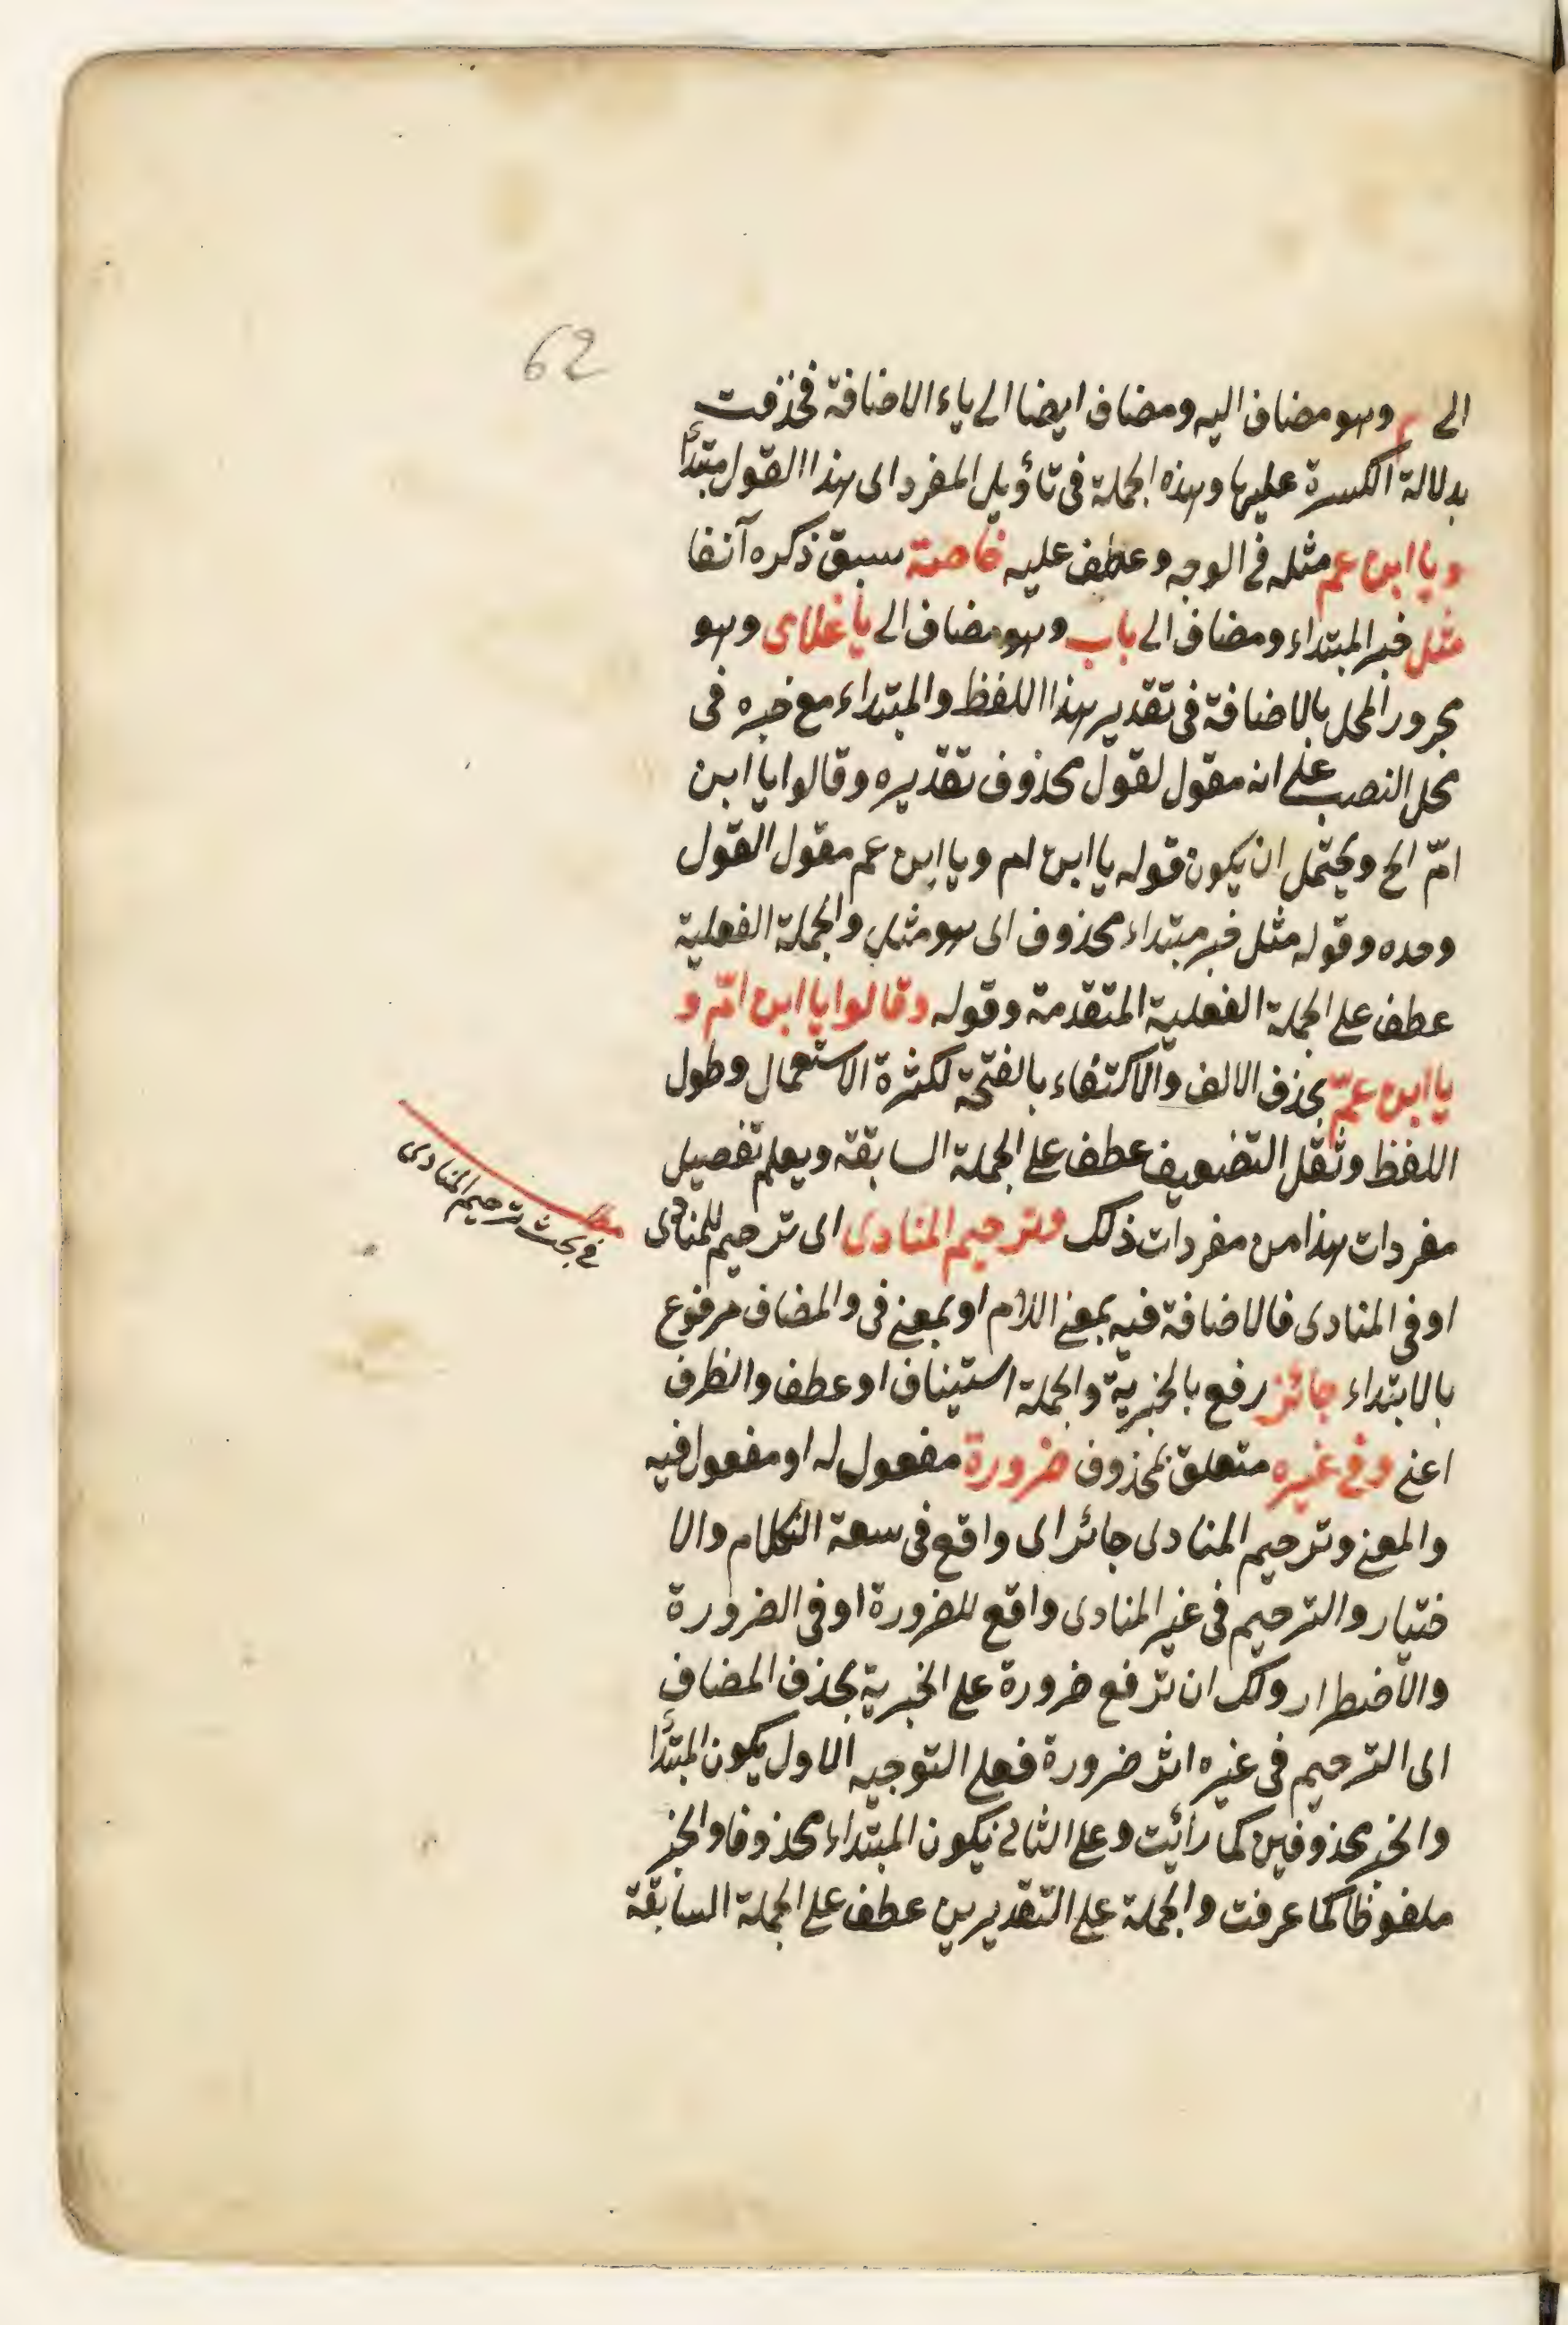 62
الى م وهو مضاف اليه ومضاف ايضا الى ياء الاضافة فحذفت
بدلالة الكسرة عليها وهذه الجملة فى تأويل المفرد اى هذا القول مبتدأ
ويا ابن عم مثله فى الوجه وعطف عليه خاصة سبق ذكره آنفا
مثل خبر المبتداء ومضاف الى باب وهو مضاف الى يا غلامى وهو
مجرور المحل بالاضافة فى تقدير هذا اللفظ والمبتداء مع خبره فى
محل النصب على انه مقول لقول محذوف تقديره وقالوا يا ابن
امّ الخ ويحتمل ان يكون قوله يا ابن ام ويا ابن عم مقول القول
وحده وقوله مثل خبر مبتداء محذوف اى هو مثل والجملة الفعلية
عطف على الجملة الفعلية المتقدمة وقوله وقالوا يا ابن امّ و
يا ابن عمّ بحذف الالف والاكتفاء بالفتحة لكثرة الاستعمال وطول
اللفظ وثقل التضعيف عطف على الجملة السابقة ويعلم تفصيل
مفردات هذا من مفردات ذلك وترخيم المنادى اى ترخيم للمنادى
مطلب
فى بحث ترخيم المنادى
او فى المنادى فالاضافة فيه بمعنى اللام او بمعنى فى والمضاف مرفوع
بالابتداء جائز رفع بالخبرية والجملة استيناف او عطف والظرف
اعنى وفى غيره متعلق بمحذوف ضرورة مفعول له او مفعول فيه
والمعنى وترخيم المنادى جائز اى واقع فى سعة الكلام والا
ختيار والترخيم فى غير المنادى واقع للضرورة او فى الضرورة
والاضطرار ولك ان ترفع ضرورة على الخبرية بحذف المضاف
اى الترخيم فى غيره اثر ضرورة فعلى التوجيه الاول يكون المبتدأ
والخبر محذوفين كما رأيت وعلى الثانى يكون المبتداء محذوفا والخبر
ملفوظا كما عرفت والجملة على التقديرين عطف على الجملة السابقة